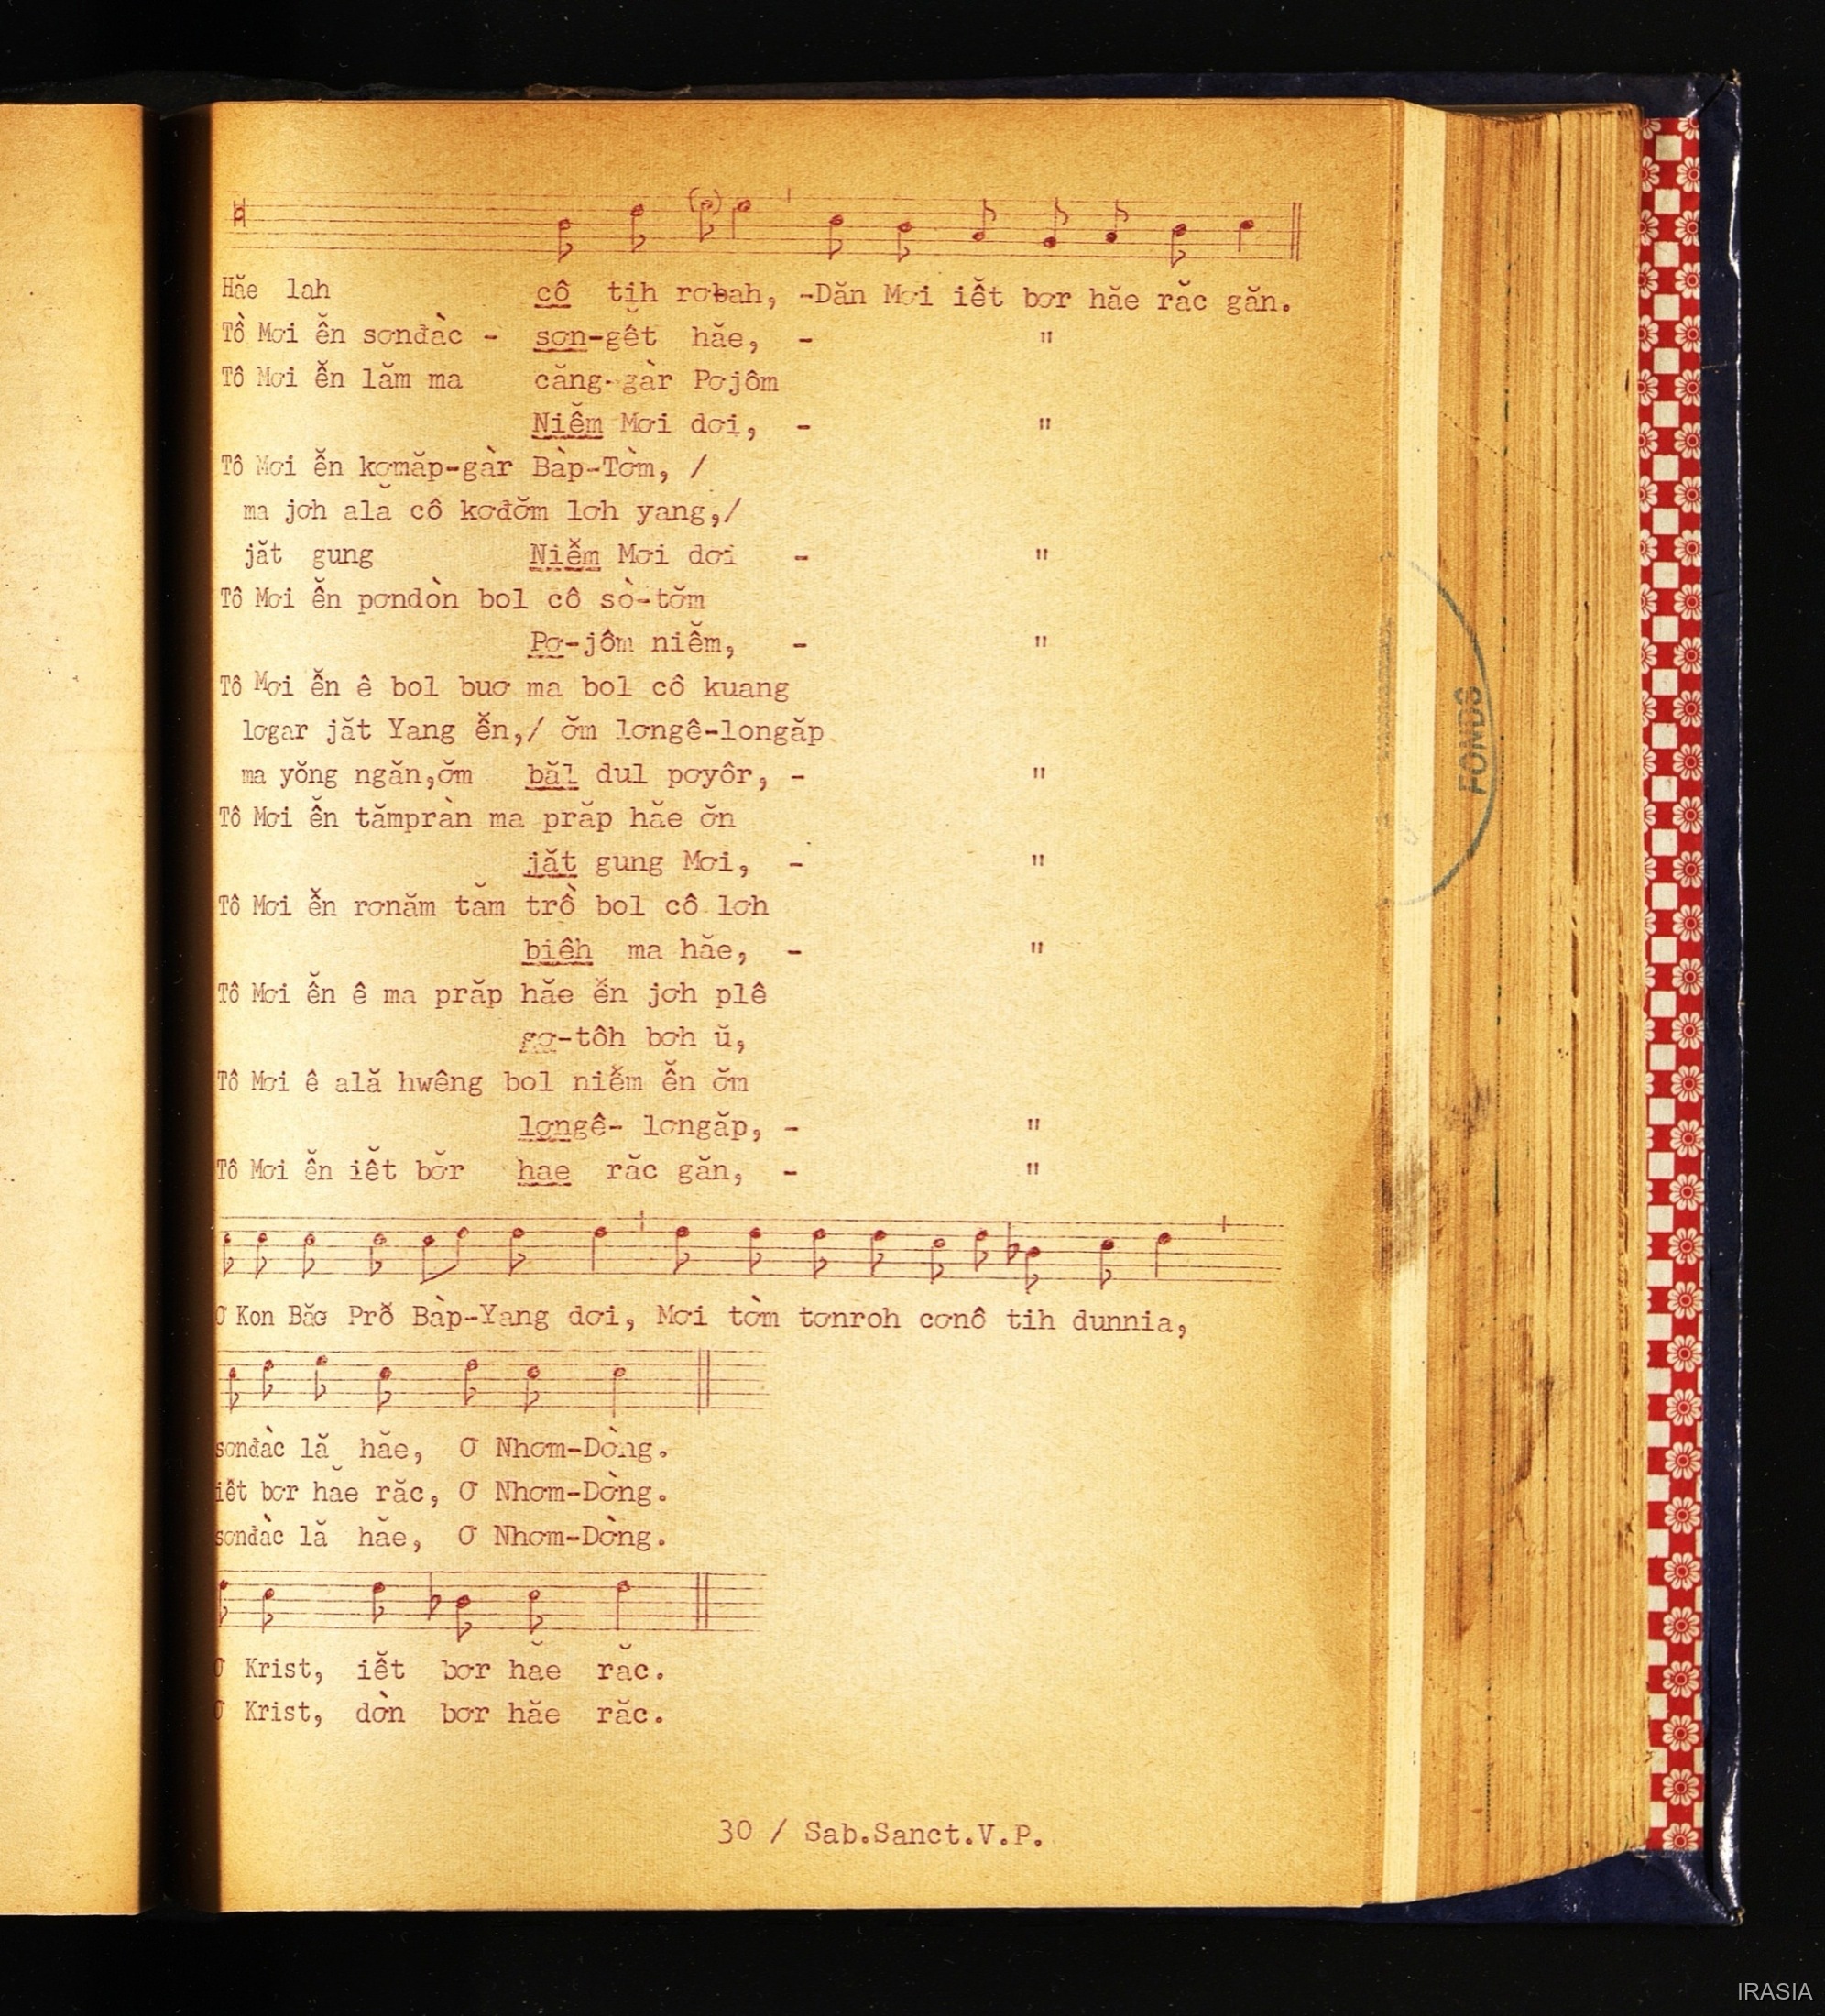 Hăe lah cô tih rơbah, -Dăn Mơi iết bơr hăe răc găn.
Tồ Mơi ển sơnđàc - sơn-gết hăe, - "
Tô Mơi ển lăm ma căng-gàr Pơjôm
Niểm Mơi dơi, - "
Tô Mơi ển kơmăp-gàr Bàp-Tờm, /
ma jơh ală cô kơđờm lơh yang,/
jăt gung Niểm Mơi dơi - "
Tô Mơi ển pơndờn bol cô sò-tờm
Pơ-jôm niểm, - "
Tô Mơi ển ê bol buơ ma bol cô kuang
lơgar jăt Yang ển,/ ờm lơngê-longăp
ma yŏng ngăn,ờm băl dul pơyôr, - "
Tô Mơi ển tămpràn ma prăp hăe ờn
jăt gung Mơi, - "
Tô Mơi ển rơnăm tăm trồ bol cô lơh
biêh ma hăe, - "
Tô Mơi ển ê ma prăp hăe ển jơh plê
gơ-tôh bơh ŭ,
Tô Mơi ê ală hwêng bol niểm ển ờm
lơngê- lơngăp, - "
Tô Mơi ển iết bơr hae răc găn, - "
Ơ Kon Băc Prờ Bàp-Yang dơi, Mơi tờm tơnroh cơnô tih dunnia,
sơnđàc lă hăe, Ơ Nhơm-Dờng.
iêt bơr hăe răc, Ơ Nhơm-Dờng.
sơnđàc lă hăe, Ơ Nhơm-Dờng.
Ơ Krist, iết bơr hăe răc.
Ơ Krist, dờn bơr hăe răc.
30 / Sab.Sanct.V.P.
FONDS
IRASIA